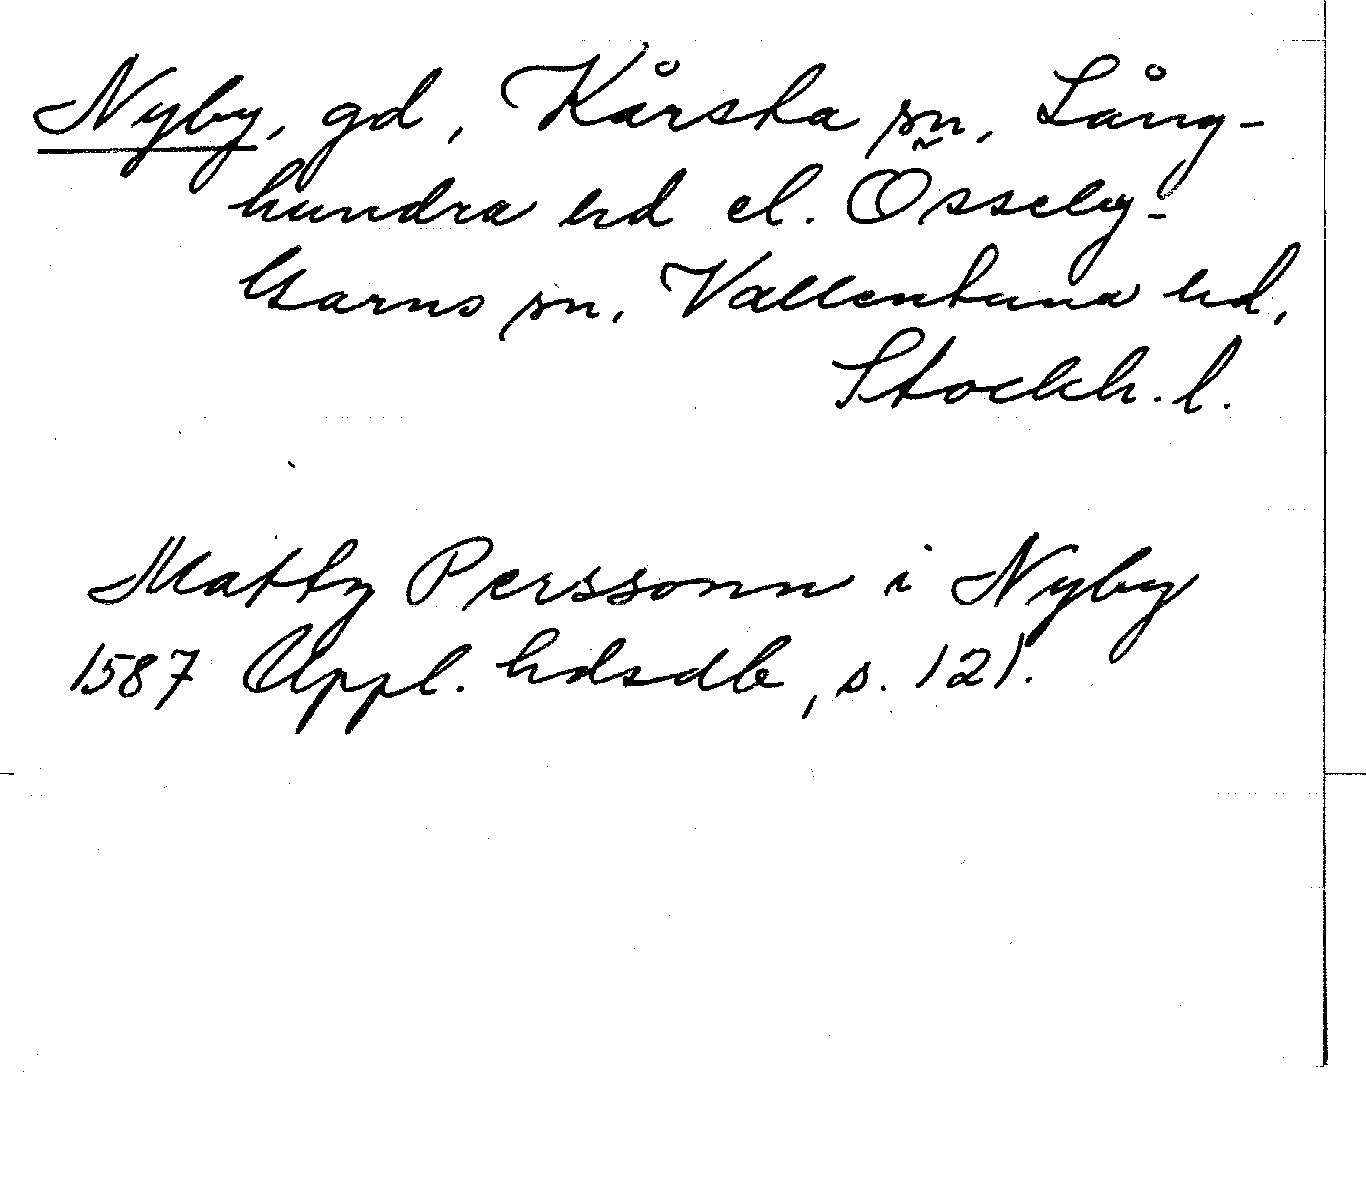 Nyby, gd, Kårsta sn, Lång-
hundra hd el. Össeby-
Garns sn, Vallentuna hd,
Stockh. l.
Matty Perssonn i Nyby
1587 Uppl. hdsdb, s. 121.